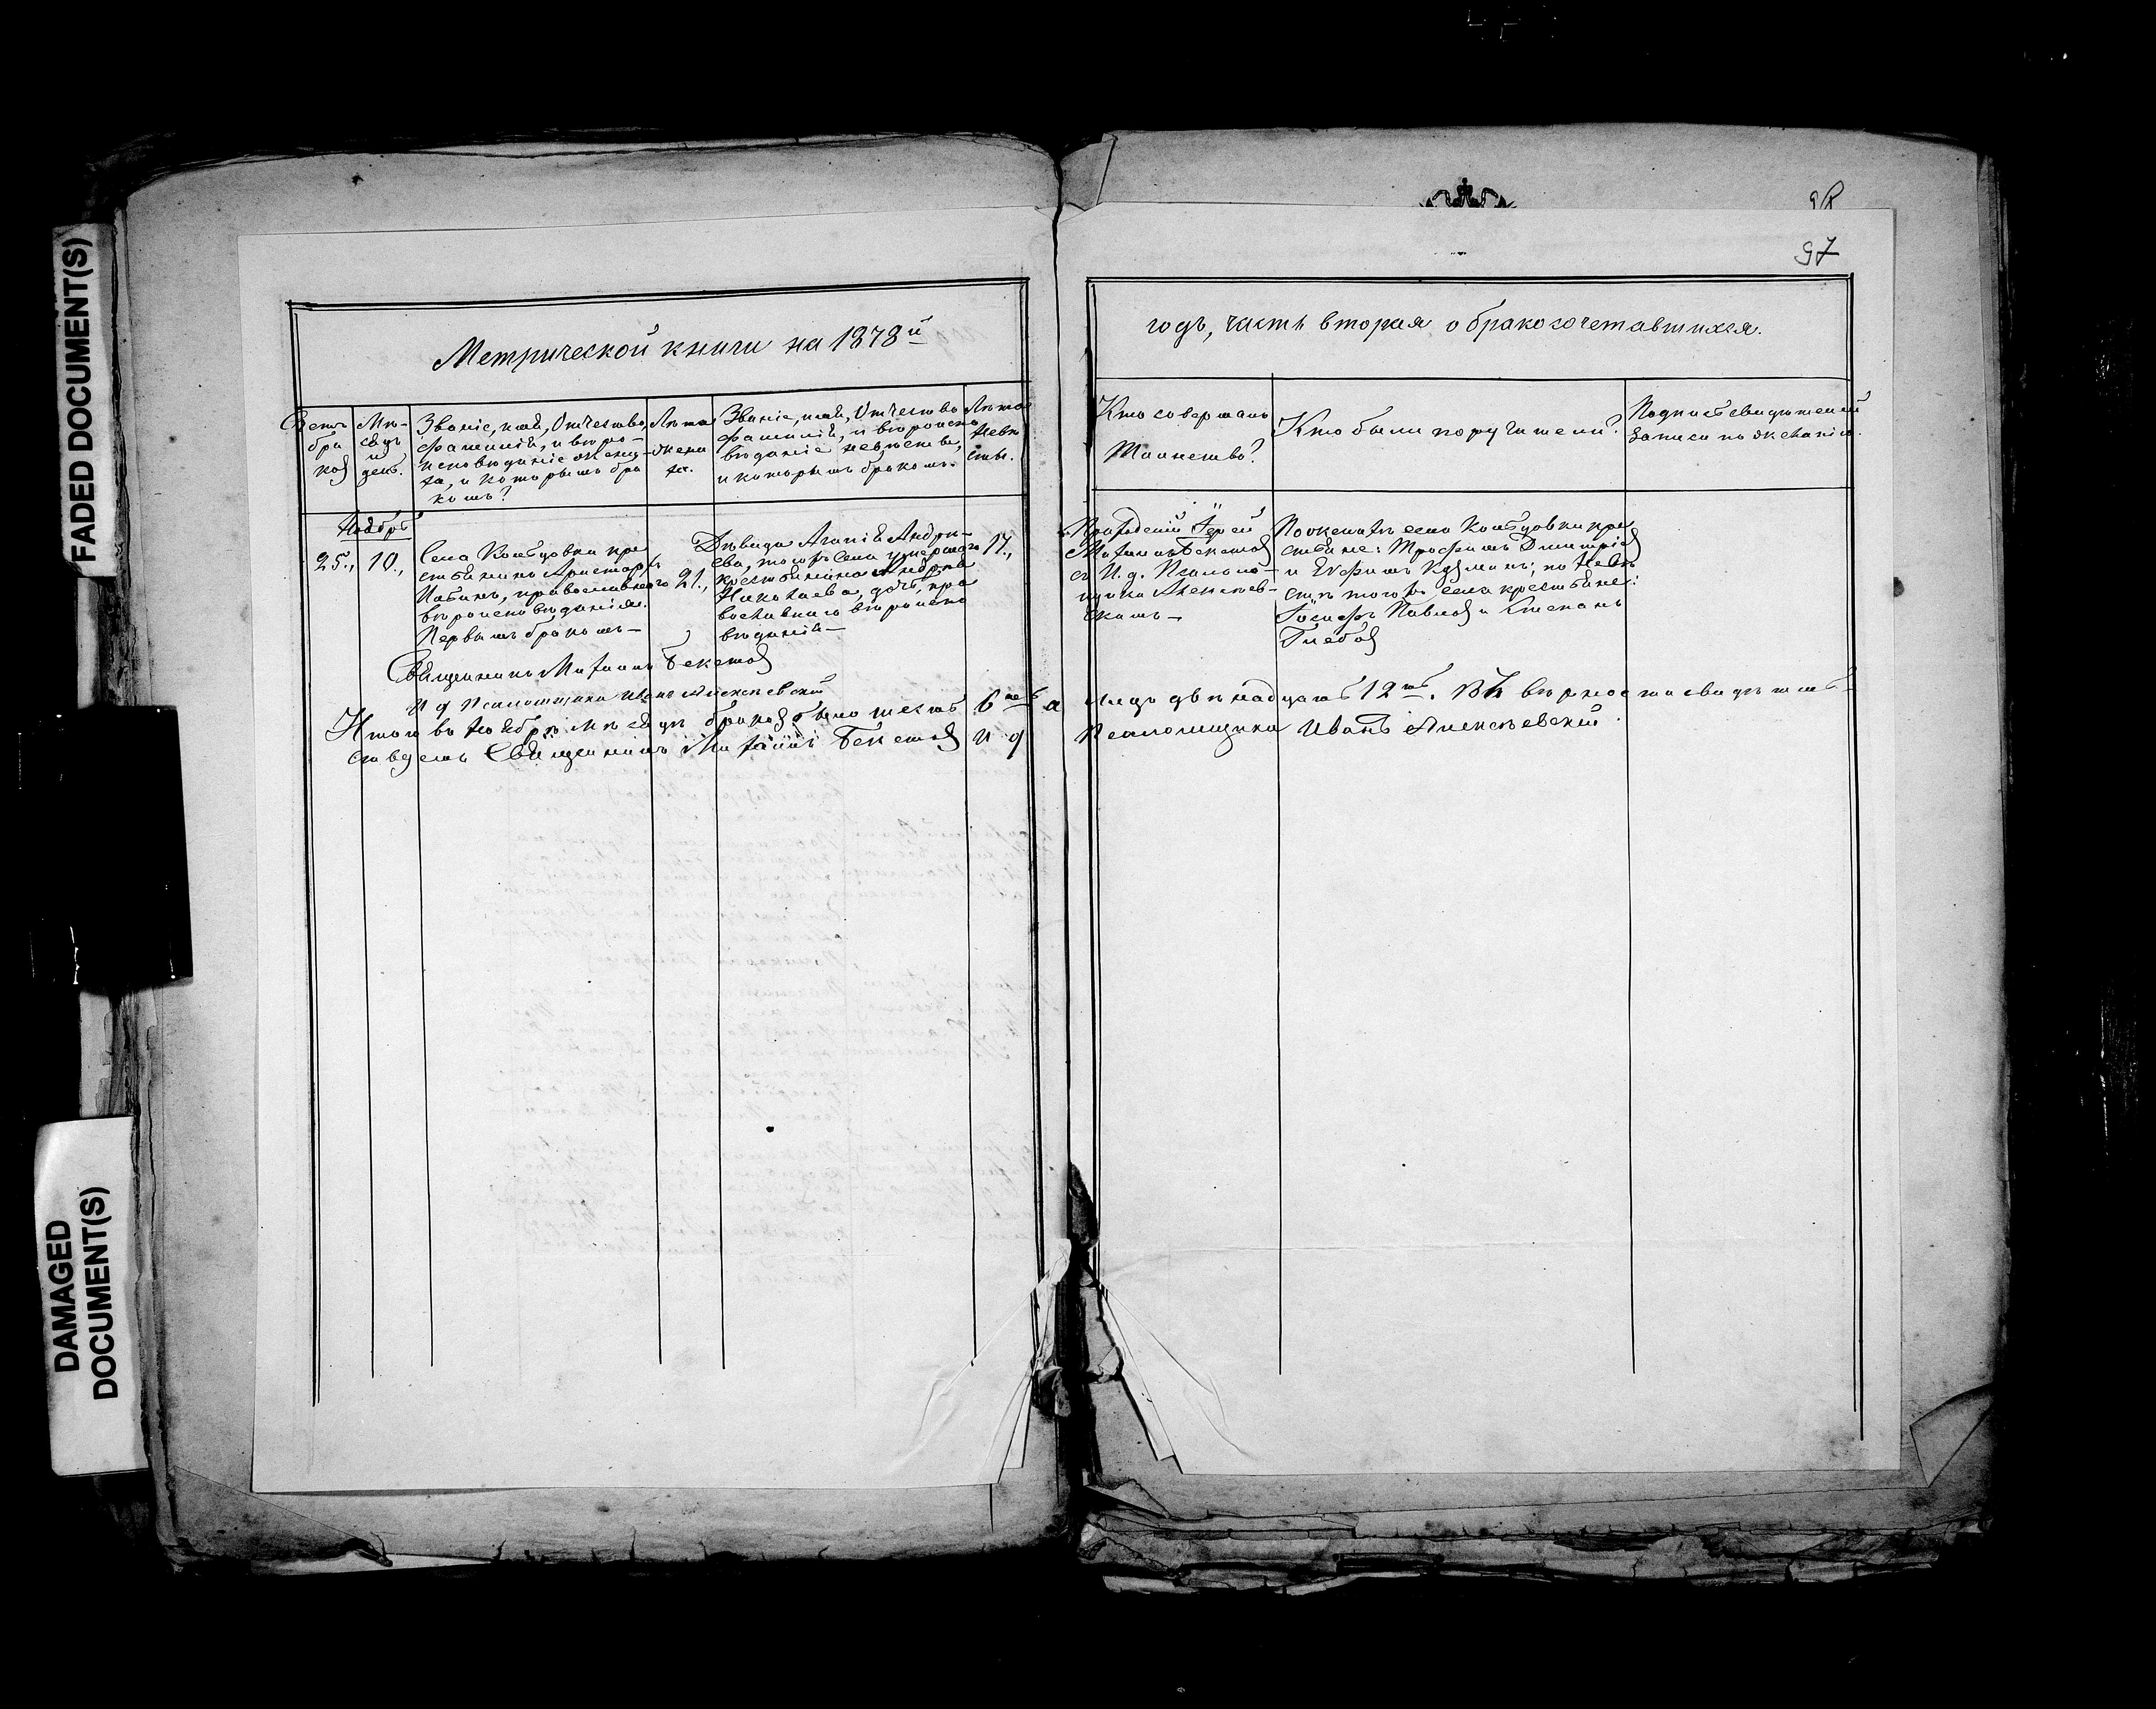 FADED DOCUMENT(S)
DAMAGED
DOCUMENT(S)
97
Метрической книги на 1878й
годъ, часть вторая о бракосочетавшихся.
Счетъ
бра
ков
Мѣ-
сяцъ
и
день.
Званіе, имя, Отчество,
фамилія, и вѣро-
исповѣданіе жени-
ха, и которымъ бра
комъ?
Лѣта
жени
ха.
Званіе, имя, Отчество
фамилія, и вѣроиспо
вѣданіе невѣсты,
и которымъ бракомъ.
Лѣта
невѣ
сты.
Кто совершалъ
Таинство?
Кто были поручители?
Подпись свидѣтелей
записи по желанію.
Ноябрь
25., 10.,
Села крес
стьянинъ Аристархъ
православнаго
вѣроисповѣданія.
Первымъ бракомъ-
21.,
Дѣвица Агапія Андре-
ева, тогожъ села умершаго
крестьянина Андрея
Николаева, дочь, пра
вославнаго вѣроиспо
вѣданія-
17.,
Приходскій Іерей
Михаилъ Бекетов
съ И. д. Псаломщ-
щика Алексѣев-
скимъ-
По женихѣ села кре
стьяне: Трофимъ Дмитріев
и Евфимъ Кузминъ; по невѣ
стѣ тогожъ села крестьяне:
Іосифъ Павлов и Степанъ
Глебов
Священникъ Михаилъ Бекетов
И д Псаломщика Иванъ Алексѣевскій
Итого въ Ноябрѣ мѣсяцѣ браков было шесть 6ть а лицъ двѣнадцать 12ть. Въ вѣрности свидѣтель-
ствуемъ Священникъ Михаилъ Бекетов И д Псаломщика Иванъ Алексѣевскій.